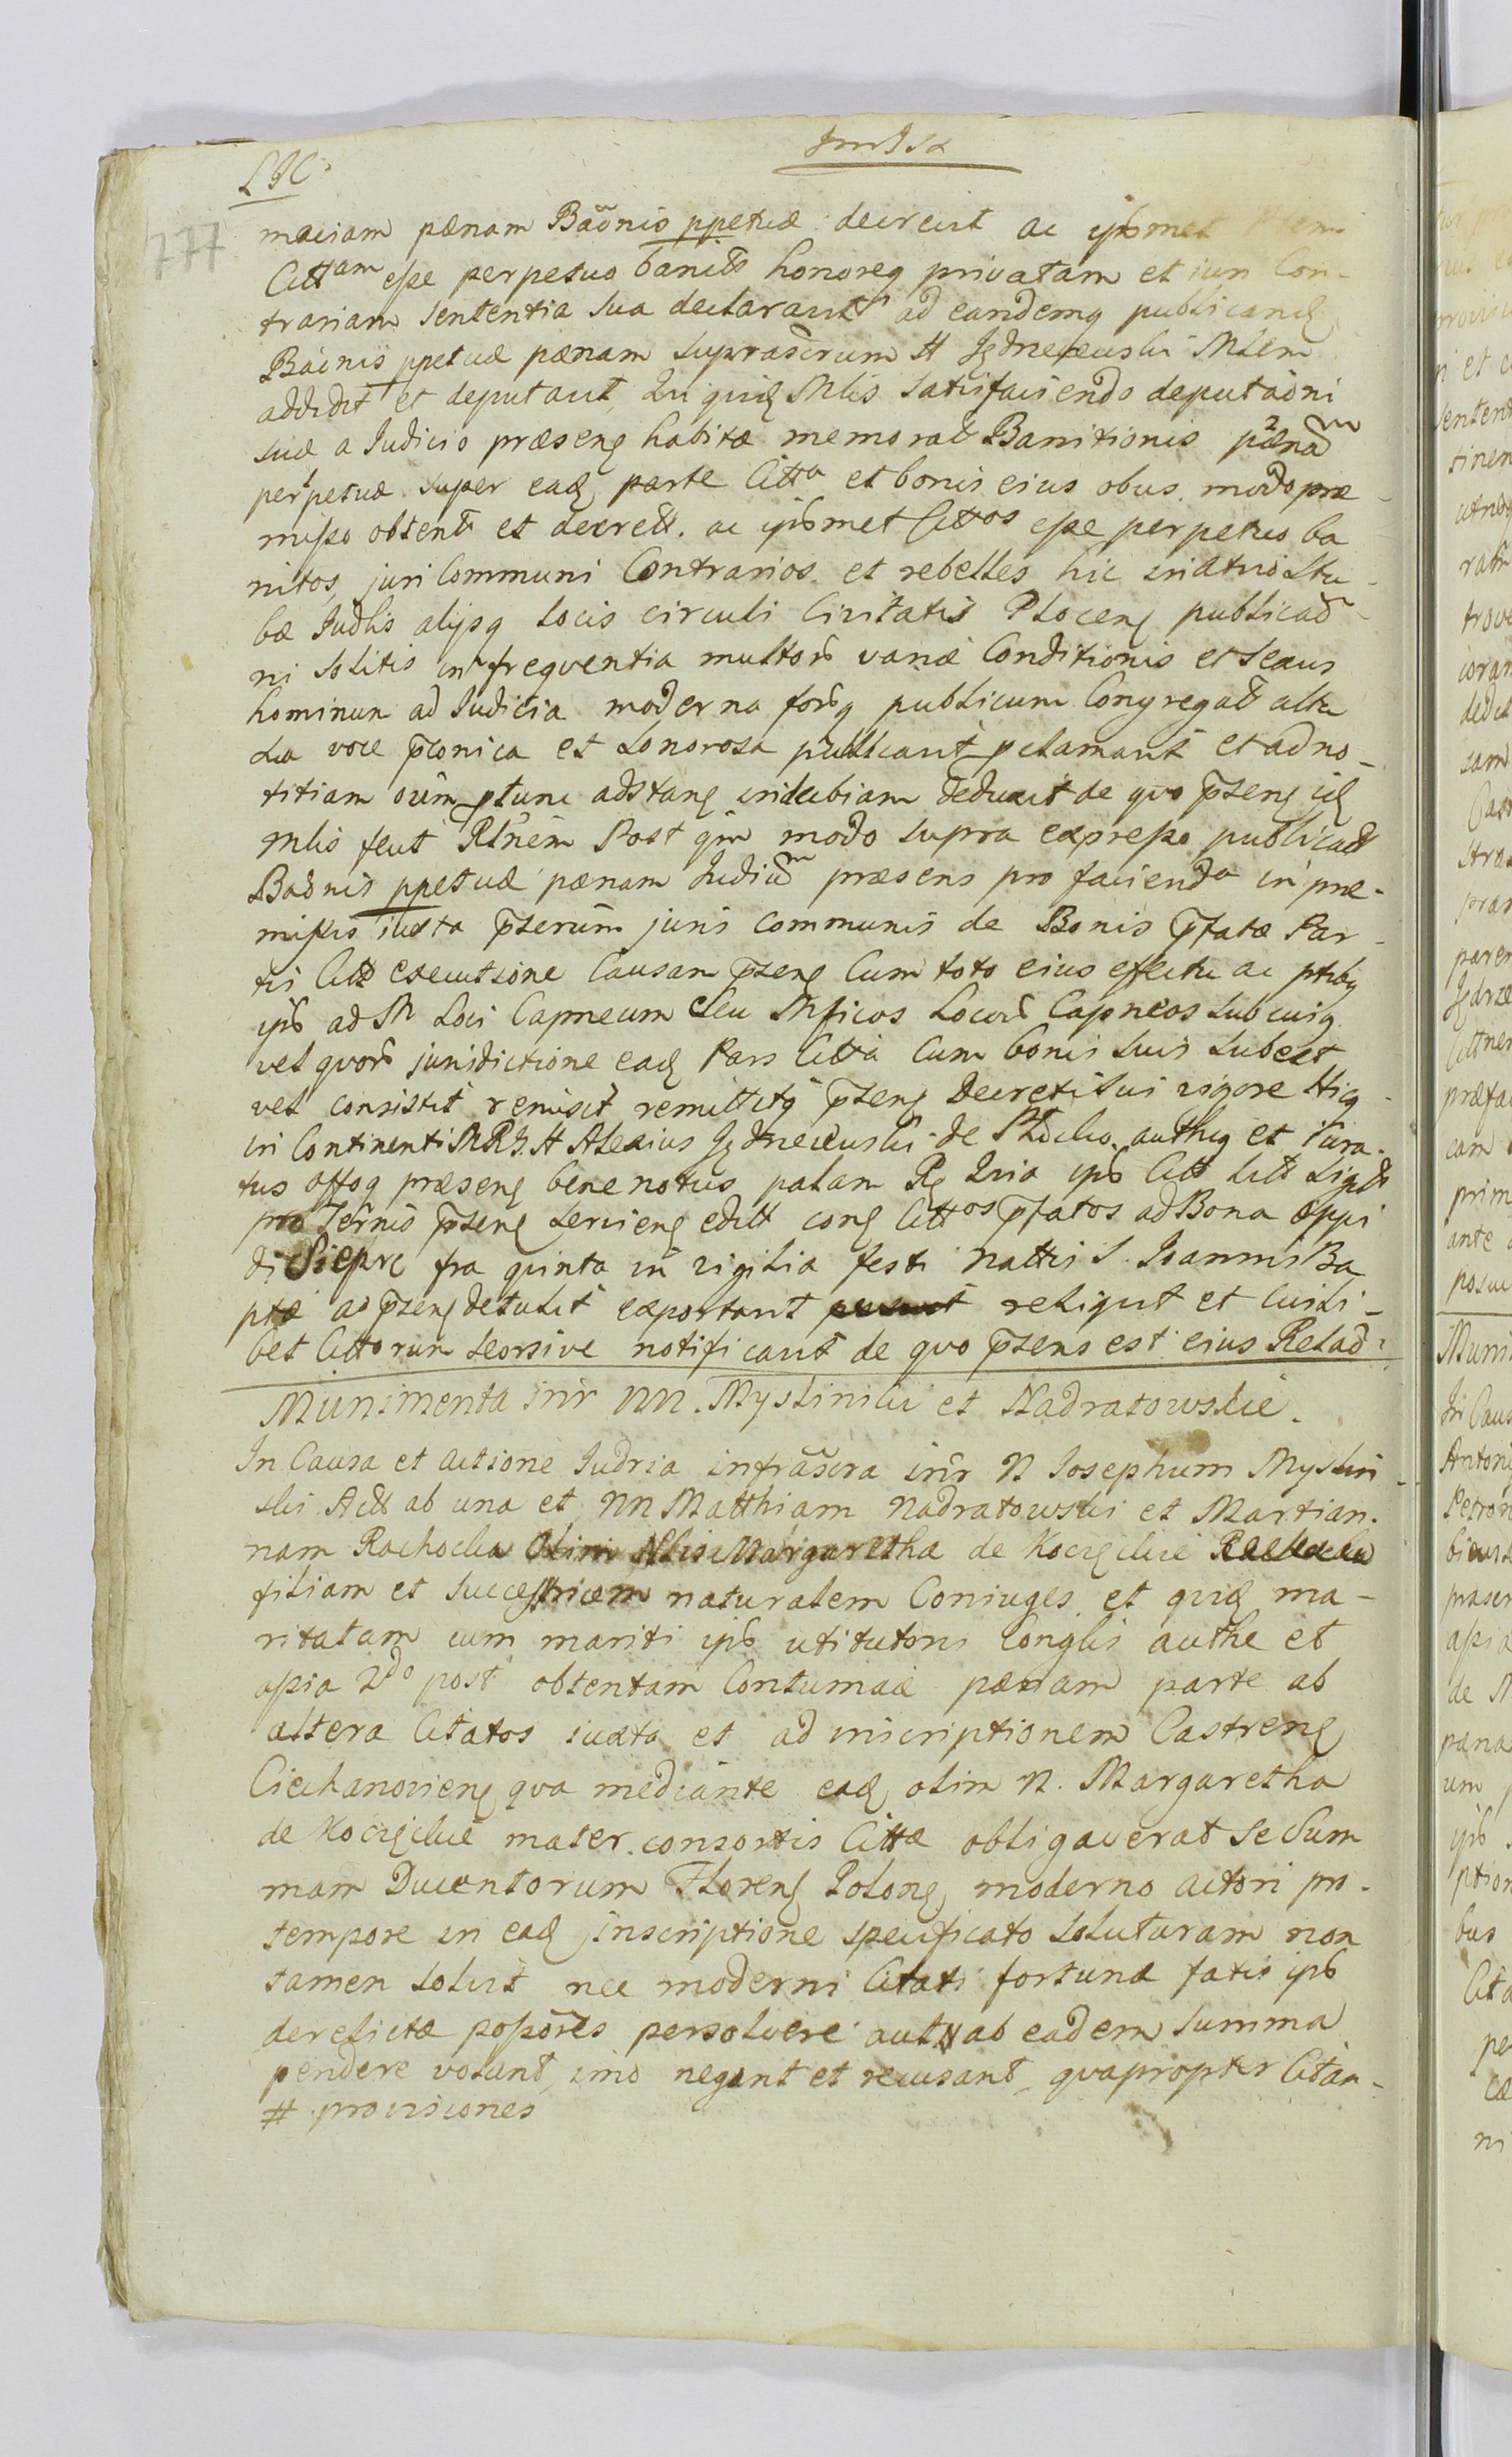 LIC
777
maciam pænam Baönis ppetuæ decreuit ac ipsmet
Cittam esse perpetuo banitã honoreq privatam et iuri Con-
trariam sententia sua declarauit ad eandemq publicandę
Baönis ppetuæ pænam suprascrum H Jędrzeiewski Mlem
addidit et deputauit, Qui quidę Mlis satisfaciendo deputaöni
suæ a Judicio præsenę habitæ memorat Bannitionis 2 pænam
1 perpetuæ super eadę parte Citta et bonis eius obus modo præ-
misso obtent et decrett. ac ipsmet Cittos esse perpetuo ba
nitos, juri Communi Contrarios et rebelles hic in atrio Stu-
bæ Judlis alijsq locis circuli Civitatis Plocenę publicaö-
ni solitis in freqventia multorũ variæ Conditionis et sexus
hominum ad Judicia moderna forũq publicum Congregat alta
sua voce pconica et sonorosa publicauit pclamauit et ad no-
titiam oium ptunc adstanę indubiam deduxit de qvo psenę idę
Mlis fecit Rlnem Post qm modo supra expresso publicatt
Baönis ppetuæ pænam Judium præsens pro facienda in præ-
missis iuxta pscrum juris communis de Bonis pfatæ Par-
tis Citt executione Causam psenę Cum toto eius effectu ac ptibq
ipis ad M Loci Capneum seu Mficos Locorũ Capneos sub cuiq
vel qvorũ jurisdictione eadę Pars Citta Cum bonis suis subest
vel consistit remisit remittitq psenę Decreti sui vigore Hicq
in Continenti MRG. H Alexius Jędrzeiewski de authq et iura-
tus offoq præsenę bene notus palam Rę Quia ipis Citt litt
pro Termis psenę servienę editt conę Cittos pfatos ad Bona oppi
di Siepre fra quinta in vigilia festi nattis S. Joannis Ba
ptæ ad psenę detulit exportauit reliqvit et Cuili-
bet Cittorum seorsive notificauit de qvo psens est eius Relaö
Munimenta intr NN. Myslinski et Nadratowskie.
In Causa et actione Judria infrascra intr N Josephum Myslin-
ski Actt ab una et NN Matthiam Nadratowski et Martian-
nam Rachocka Olim Nlis Margarethæ de Kocięckie
filiam et succestricem naturalem Coniuges et qvidę ma-
ritatam cum mariti ipis uti tutoris Conglis authe et
assia 2do post obtentam Contumaciæ pænam parte ab
altera Citatos iuxta et ad inscriptionem Castrenę
Ciechanovienę qva mediante eadę olim N. Margaretha
de Kocięckie mater consortis Cittæ obligaverat se Sum
mam Ducentorum Florenę Polonę moderno actori pro
tempore in eadę inscriptione specificato soluturam non
tamen solvit nec moderni Citati fortunæ fatis ipis
derelictæ possores persolvere aut # ab eadem summa
pendere volunt, imo negant et recusant, qvapropter Citan-
# provisiones